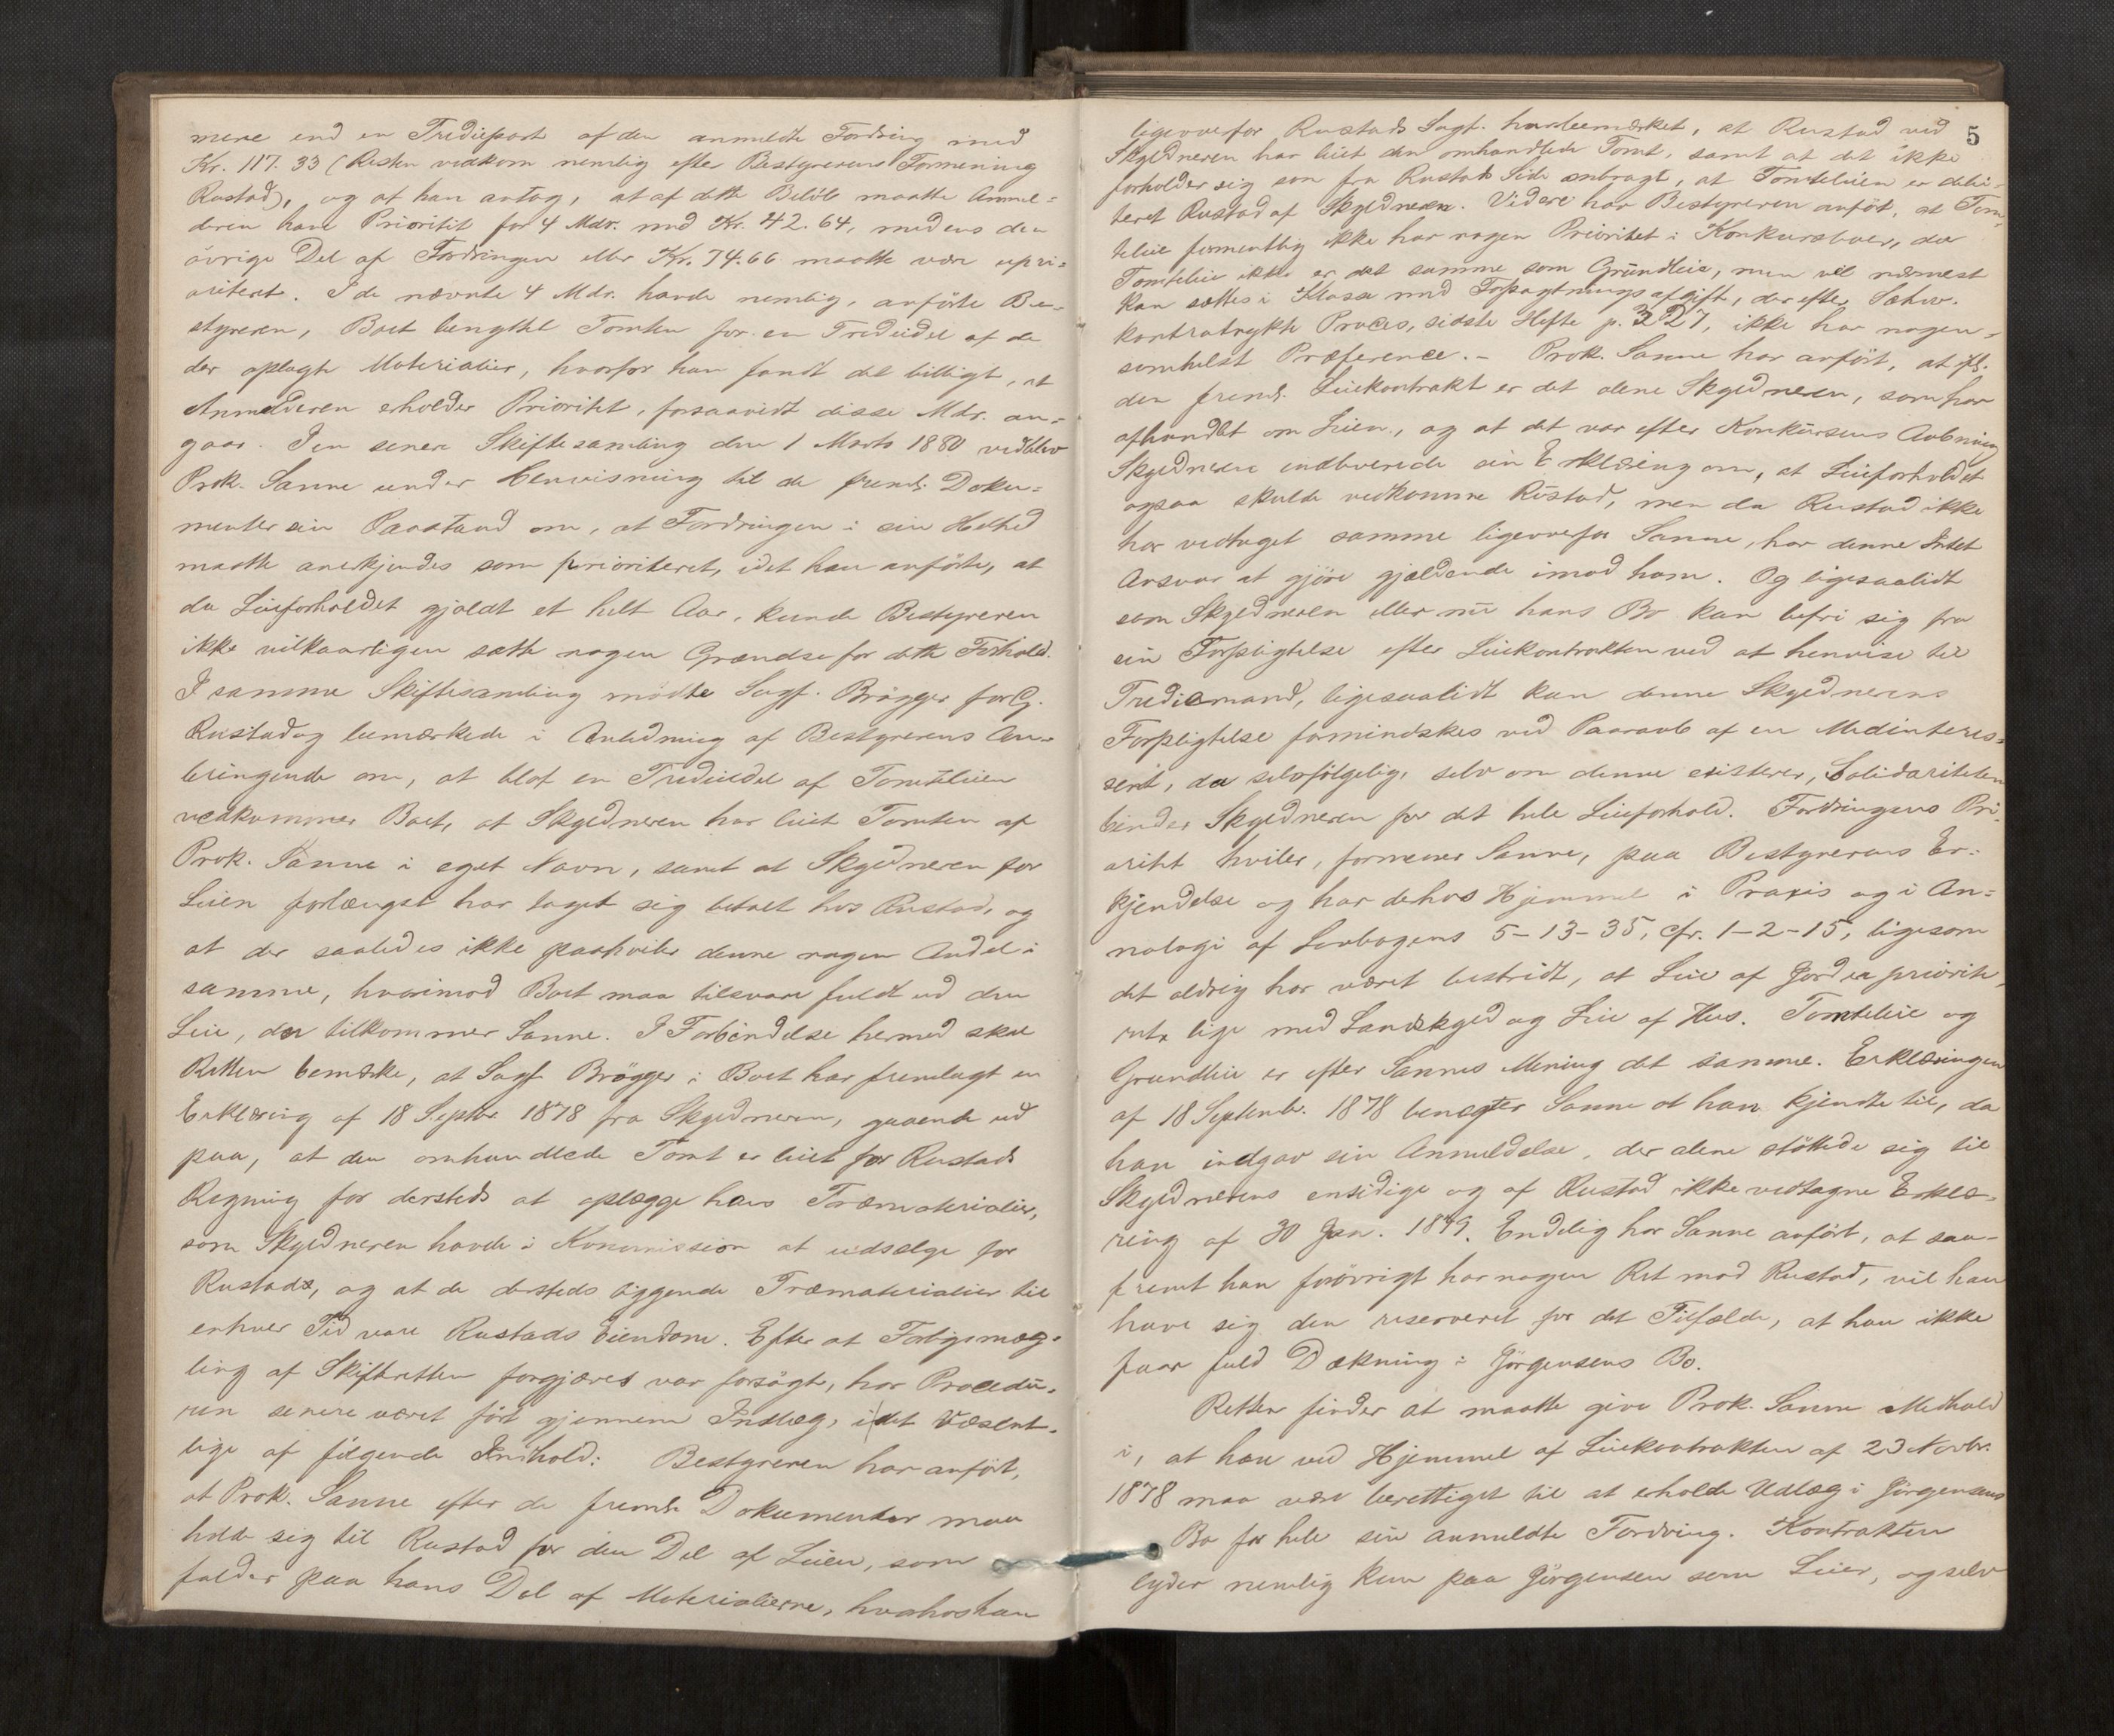 mere end en Trediepart af den anmeldte Fordring med
Kr. 117.33 (Resten vedkom nemlig efter Bestyrerens Formening
Rustad), og at han antog, at af dette Beløb maatte Anmel=
deren have Prioritet for 4 Mdr. med Kr. 42.64, medens den
övrige Del af Fordringen eller Kr. 74.66 maatte være upri=
oriteret. I de nævnte 4 Mdr. havde nemlig, anførte Be=
styreren, Boet benyttet Tomten for en Trediedel af de
der oplagte Materialier, hvorfor han fandt det billigt, at
Anmelderen erholder Prioritet, forsaavidt disse Mdr. an=
gaar. I en senere Skiftesamling den 1 Marts 1880 vedblev
Prok. Sanne under Henvisning til de freml. Doku=
menter sin Paastand om, at Fordringen i sin Helhed
maatte anerkjendes som prioriteret, idet han anførte, at
da Leieforholdet gjaldt et helt Aar, kunde Bestyreren
ikke vilkaarligen sætte nogen Grændse for dette Forhold.
I samme Skiftesamling mödte Sagf. Brögger for G.
Rustad og bemærkede i Anledning af Bestyrerens An=
bringende om, at blot en Trediedel af Tomteleien
vedkommer Boet, at Skyldneren har leiet Tomten af
Prok. Sanne i eget Navn, samt at Skyldneren for
Leien forlængst har taget sig betalt hos Rustad, og
at der saaledes ikke paahviler denne nogen Andel i
samme, hvorimod Boet maa tilsvare fuldt ud den
Leie, der tilkommer Sanne. I Forbindelse hermed skal
Retten bemærke, at Sagf. Brögger i Boet har fremlagt en
Erklæring af 18 Septbr. 1878 fra Skyldneren, gaaende ud
paa, at den omhandlede Tomt er leiet for Rustads
Regning for dersteds at oplægge hans Træmaterialier,
som Skyldneren havde i Kommission at udsælge for
Rustads, og at de dersteds liggende Træmaterialier til
enhver Tid vare Rustads Eiendom. Efter at Forligsmæg=
ling af Skifteretten forgjæves var forsögt, har Procedü=
ren senere været fört gjennem Indlæg, i det Væsent=
lige af fölgende Indhold: Bestyreren har anfört,
at Prok. Sanne efter de freml. Dokumenter maa
holde sig til Rustad for den Del af Leien, som
falder paa hans Del af Materialierne, hvorhos han
5
ligeoverfor Rustads Sagf. har bemærket, at Rustad ved
Skyldneren har leiet den omhandlede Tomt, samt at det ikke
forholder sig som fra Rustads Side anbragt, at Tomteleien er debi=
teret Rustad af Skyldneren. Videre har Bestyreren anfört, at Tom=
teleie formentlig ikke har nogen Prioritet i Konkursboer, da
Tomteleie ikke er det samme som Grundleie, men vel nærmest
kan sættes i Klasse med Forpagtningsafgift, der efter
Proces, sidste Hefte p. 327, ikke har nogen=
somhelst Præference. – Prok. Sanne har anfört, at
den freml. Leiekontrakt er det alene Skyldneren, som har
afhandlet om Leien, og at det var efter Konkursens Aabning
Skyldneren indleverede sin Erklæring om, at Leieforholdet
ogsaa skulde vedkomme Rustad, men da Rustad ikke
har vedtaget samme ligeoverfor Sanne, har denne Intet
Ansvar at gjöre gjældende imod ham. Og ligesaalidt
som Skyldneren eller nu hans Bo kan befri sig fra
sin Forpligtelse efter Leiekontrakten ved at henvise til
Trediemand, ligesaalidt kan denne Skyldnerens
Forpligtelse formindskes ved Paaraab af en Medinteres=
sent, da selvfölgelig, selv om denne existerer, Solidariteten
binder Skyldneren for det hele Leieforhold. Fordringens Pri=
oritet hviler, formener Sanne, paa Bestyrerens Er=
kjendelse og har dehos Hjemmel i Praxis og i An=
nalogi af Lovbogens 5–13–35, cfr. 1–2–15, ligesom
det aldrig har været bestridt, at Leie af Jord er priorite=
ret lige med Landskyld og Leie af Hus. Tomteleie og
Grundleie er efter Sannes Mening det samme. Erklæringen
af 18 Septembr. 1878 benægter Sanne at han kjendte til, da
han indgav sin Anmeldelse, der alene stöttede sig til
Skyldnerens ensidige og af Rustad ikke vedtagne Erklæ=
ring af 30 Jan. 1879. Endelig har Sanne anfört, at saa=
fremt han forövrigt har nogen Ret mod Rustad, vil han
have sig den reserveret for det Tilfælde, at han ikke
faar fuld Dækning i Jörgensens Bo.
Retten finder at maatte give Prok. Sanne Medhold
i, at han ved Hjemmel af Leiekontrakten af 23 Novbr.
1878 maa være berettiget til at erholde Udlæg i Jörgensens
Bo for hele sin anmeldte Fordring. Kontrakten
lyder nemlig kun paa Jörgensen som Leier, og selv